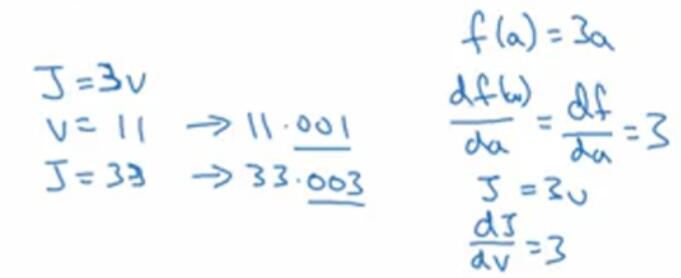 J = 3v
v = 11 → 11.001
J = 33 → 33.003
f(a) = 3a
df(a)/da = df/da = 3
J = 3v
dJ/dv = 3